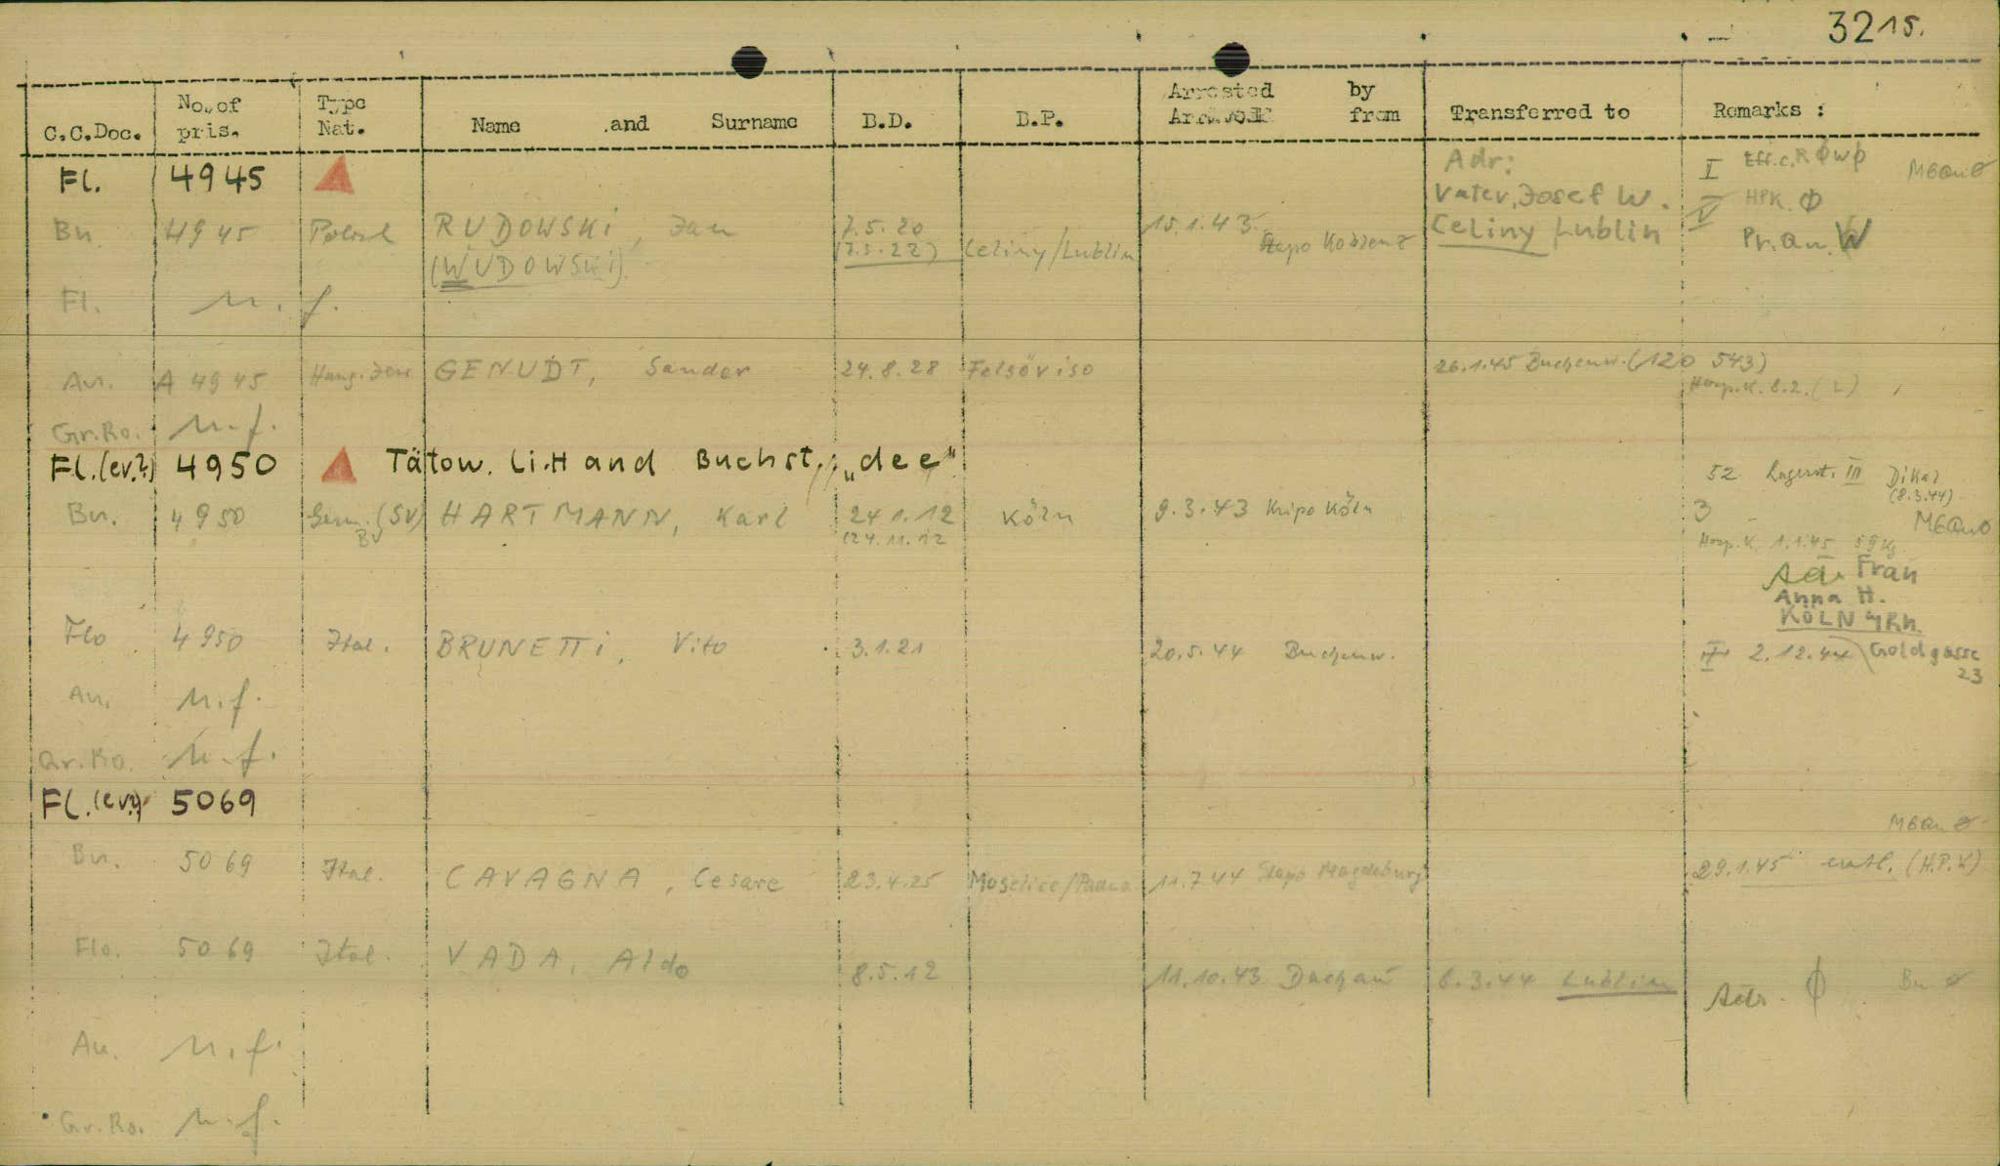 3215.
C.C.Doc. No. of pris. Type Nat. Name and Surname B.D. B.P. Arrested by from Transferred to Remarks :
Fl. 4945
Adr:
Vater, Josef W.
Celiny Lublin
I Eff.c.
HPK. Ø
V
Pr.an. W
Bu. 4945 RUDOWSKi, Jan 7.5.20 Celiny/Lublin 15.1.43 Stapo Koblenz
(WUDOWSKi) (7.5.22)
Fl. n. f.
Au. A 4945 GENUDT, Sandor 24.8.28 Felsöviso 26.1.45 Buchenw. (120 543)
Hosp.K. 8.2. (L)
Gr.Ro. n.f.
Fl. (ev.?) 4950 Tätow. li. Hand Buchst. „dee"
52 Lagerst. III
(8.3.44)
Bu. 4950 Germ. (SV) HARTMANN, Karl 24 1.12 Köln 9.3.43 Kripo Köln 3
BV (24.11.12
Hosp.K. 1.1.45 59 Kg
Adr Frau
Anna H.
KÖLN a/Rh.
Goldgasse
23
Flo 4950 Ital. BRUNETTi, Vito 3.1.21 20.5.44 Buchenw. 2.12.44
Au. n.f.
Gr.Ro. n.f.
Fl. (ev.?) 5069
Bu. 5069 Ital. CAVAGNA, Cesare 23.4.25 11.7.44 Stapo Magdeburg 29.1.45 entl. (H.P.K)
Flo. 5069 Ital. VADA, Aldo 8.5.12 11.10.43 Dachau 6.3.44 Lublin Adr. Ø
Au. n.f.
Gr.Ro. n.f.